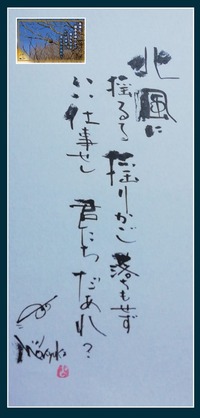 北風に
揺るる揺りかご落ちもせず
いい仕事せし
君たちだあれ？